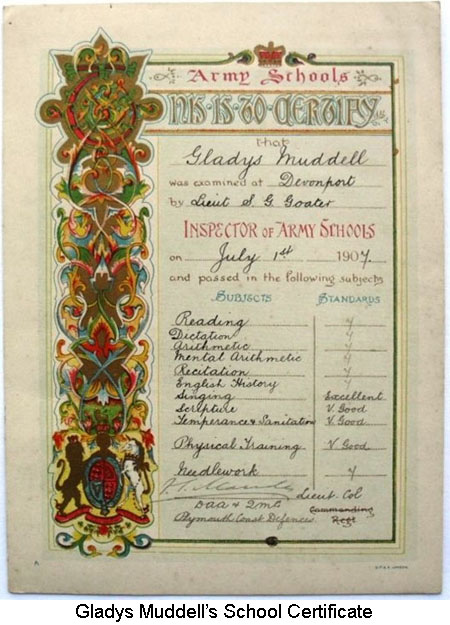 Army Schools
THIS·IS·TO·CERTIFY
that
Gladys Muddell
was examined at Devonport
by Lieut S. G. Goater
INSPECTOR OF ARMY SCHOOLS
on July 1st 1907
and passed in the following subjects
SUBJECTS STANDARDS
Reading
Dictation
Arithmetic
Mental Arithmetic
Recitation
English History
Singing Excellent
Scripture V. Good
Temperance & Sanitation V. Good
Physical Training V Good
Needlework
Lieut. Col
DAA & QMG Commanding
Plymouth Coast Defences Regt
Gladys Muddell's School Certificate